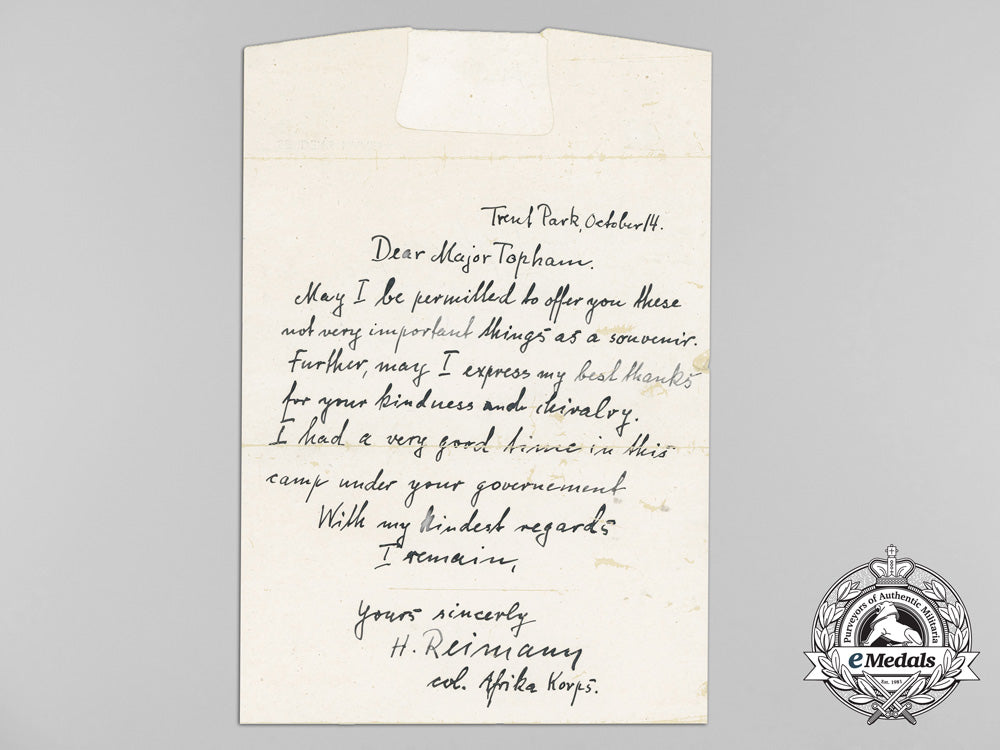 Trent Park, October 14.
Dear Major Topham.
May I be permitted to offer you these
not very important things as a souvenir.
Further, may I express my best thanks
for your kindness and chivalry.
I had a very good time in this
camp under your governement
With my kindest regards
I remain,
Yours sincerly
H. Reimann
col. Afrika Korps.
Purveyors of Authentic Militaria
eMedals
Est. 1981